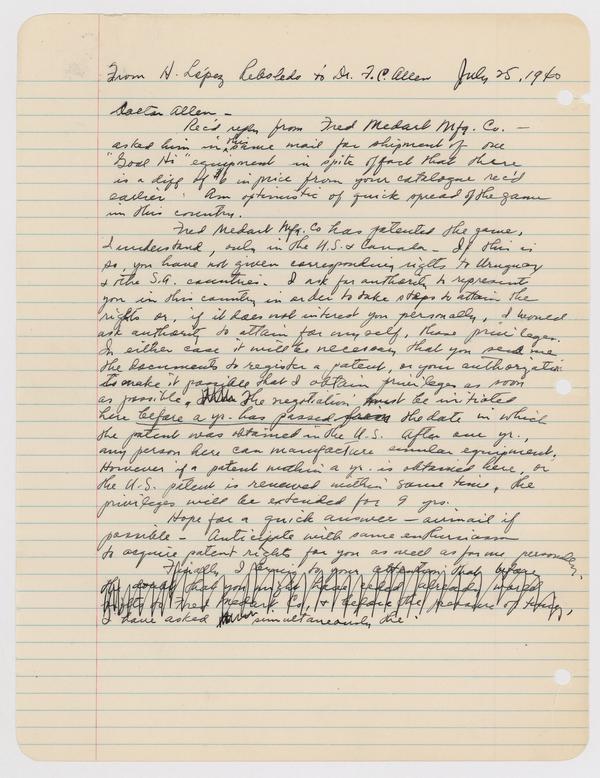 From H. López Reboledo to Dr. F.C. Allen July 25, 1940
Doctor Allen -
Rec'd reply from Fred Medart Mfg. Co. -
asked him in the same mail for shipment of one
"Goal Hi" equipment in spite of fact that there
is a diff of $6 in price from your catalogue rec'd
earlier. Am optimistic of quick spread of the game
in this country.
Fred Medart Mfg. Co has patented the game,
I understand, only in the U.S. & Canada - If this is
so, you have not given corresponding rights to Uruguay
& other S.A. countries. I ask for authority to represent
you in this country in order to take steps to attain the
rights or, if it does not interest you personally, I would
ask authority to attain for myself, those privileges.
In either case it will be necessary that you send me
the documents to register a patent, or your authorization
to make it possible that I obtain privileges as soon
as possible. The negotiation must be initiated
here before a yr. has passed from the date in which
the patent was obtained in the U.S. After one yr.,
any person here can manufacture similar equipment.
However if a patent within a yr. is obtained here, or
the U.S. patent is renewed within same time, the
privileges will be extended for 9 yrs.
Hope for a quick answer - airmail if
possible - Anticipate with same enthusiasm
to acquire patent rights for you as well as for me personally.
Finally, I bring to your attention that before
that you might have ceded already world
rights to Fred Medart Co., & before the pressure of time,
I have asked simultaneously the